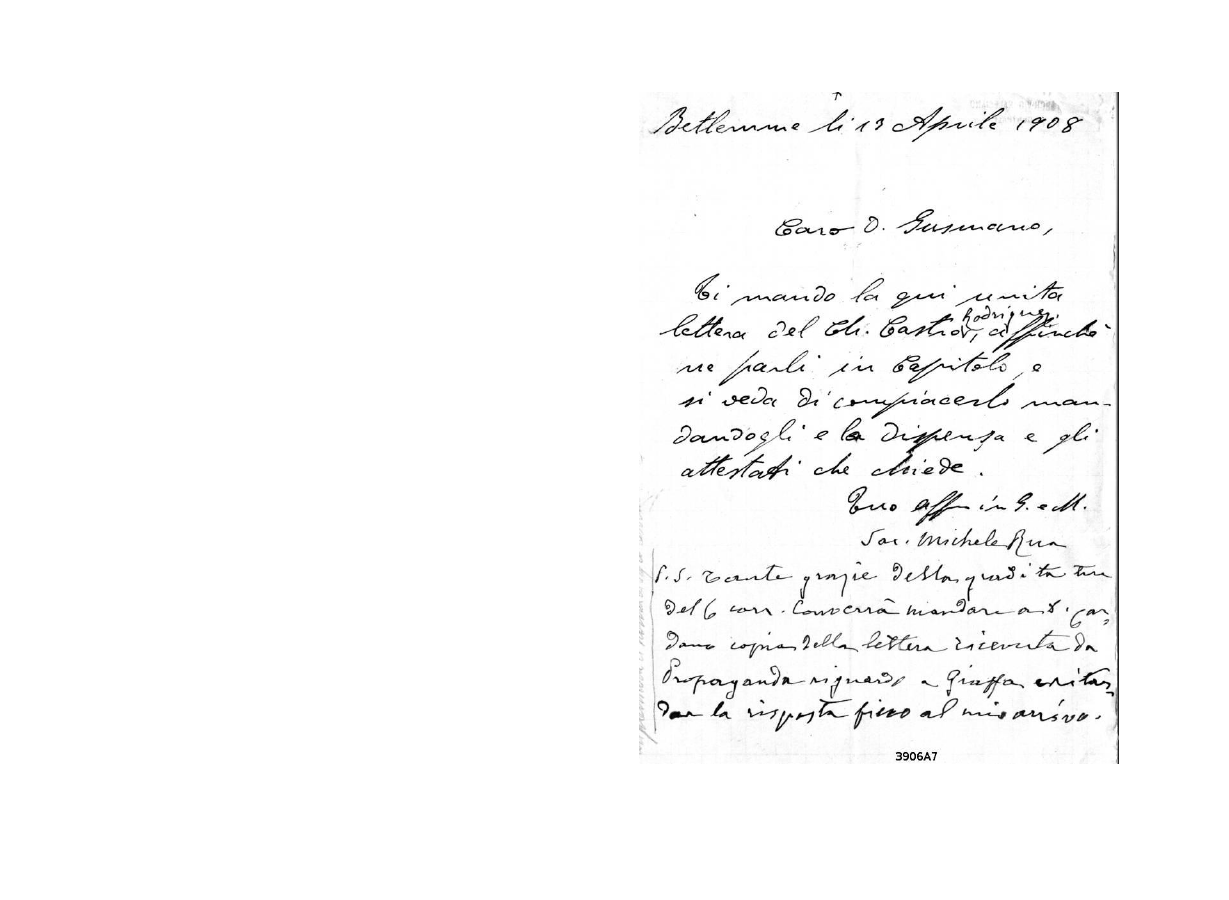 Betlemme li 13 Aprile 1908
Caro D. Gusmano,
Ti mando la qui unita
Rodriguez
lettera del Ch. Castro, affinchè
ne parli in Capitolo, e
si veda di compiacerlo man-
dandogli e la dispensa e gli
attestati che chiede.
Tuo aff in G. e M.
Sac. Michele Rua
P.S. Tante grazie della gradita tua
del 6 corr. Converrà mandare a D. Car-
dano copia della lettera ricevuta da
Propaganda riguardo a Giaffa
la risposta fino al mio arrivo.
3906A7